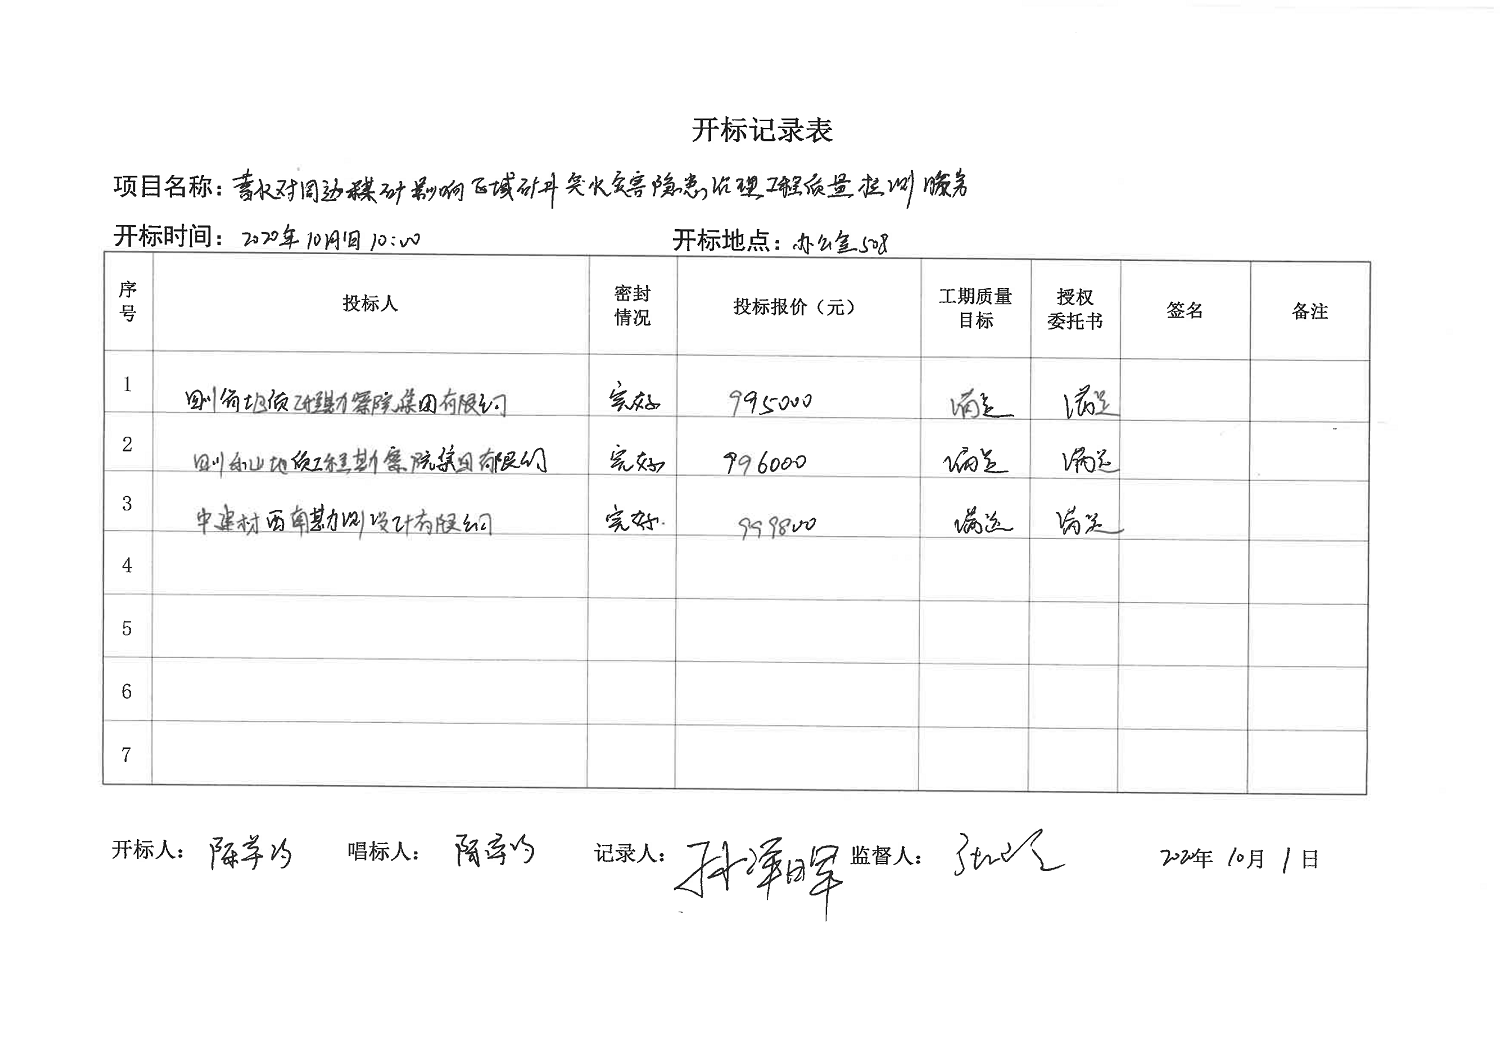 开标记录表
项目名称：蓄水对周边煤矿影响区域矿井突水灾害隐患治理工程质量检测服务
开标时间：2020年10月1日10:00 开标地点：办公室508
序号 投标人 密封情况 投标报价（元） 工期质量目标 授权委托书 签名 备注
1 四川省地质工程勘察院集团有限公司 完好 995000 满足 满足
2 四川 山地质工程勘察院集团有限公司 完好 996000 满足 满足
3 中建材西南勘测设计有限公司 完好 999800 满足 满足
4
5
6
7
开标人： 唱标人： 记录人： 监督人： 2020年10月1日